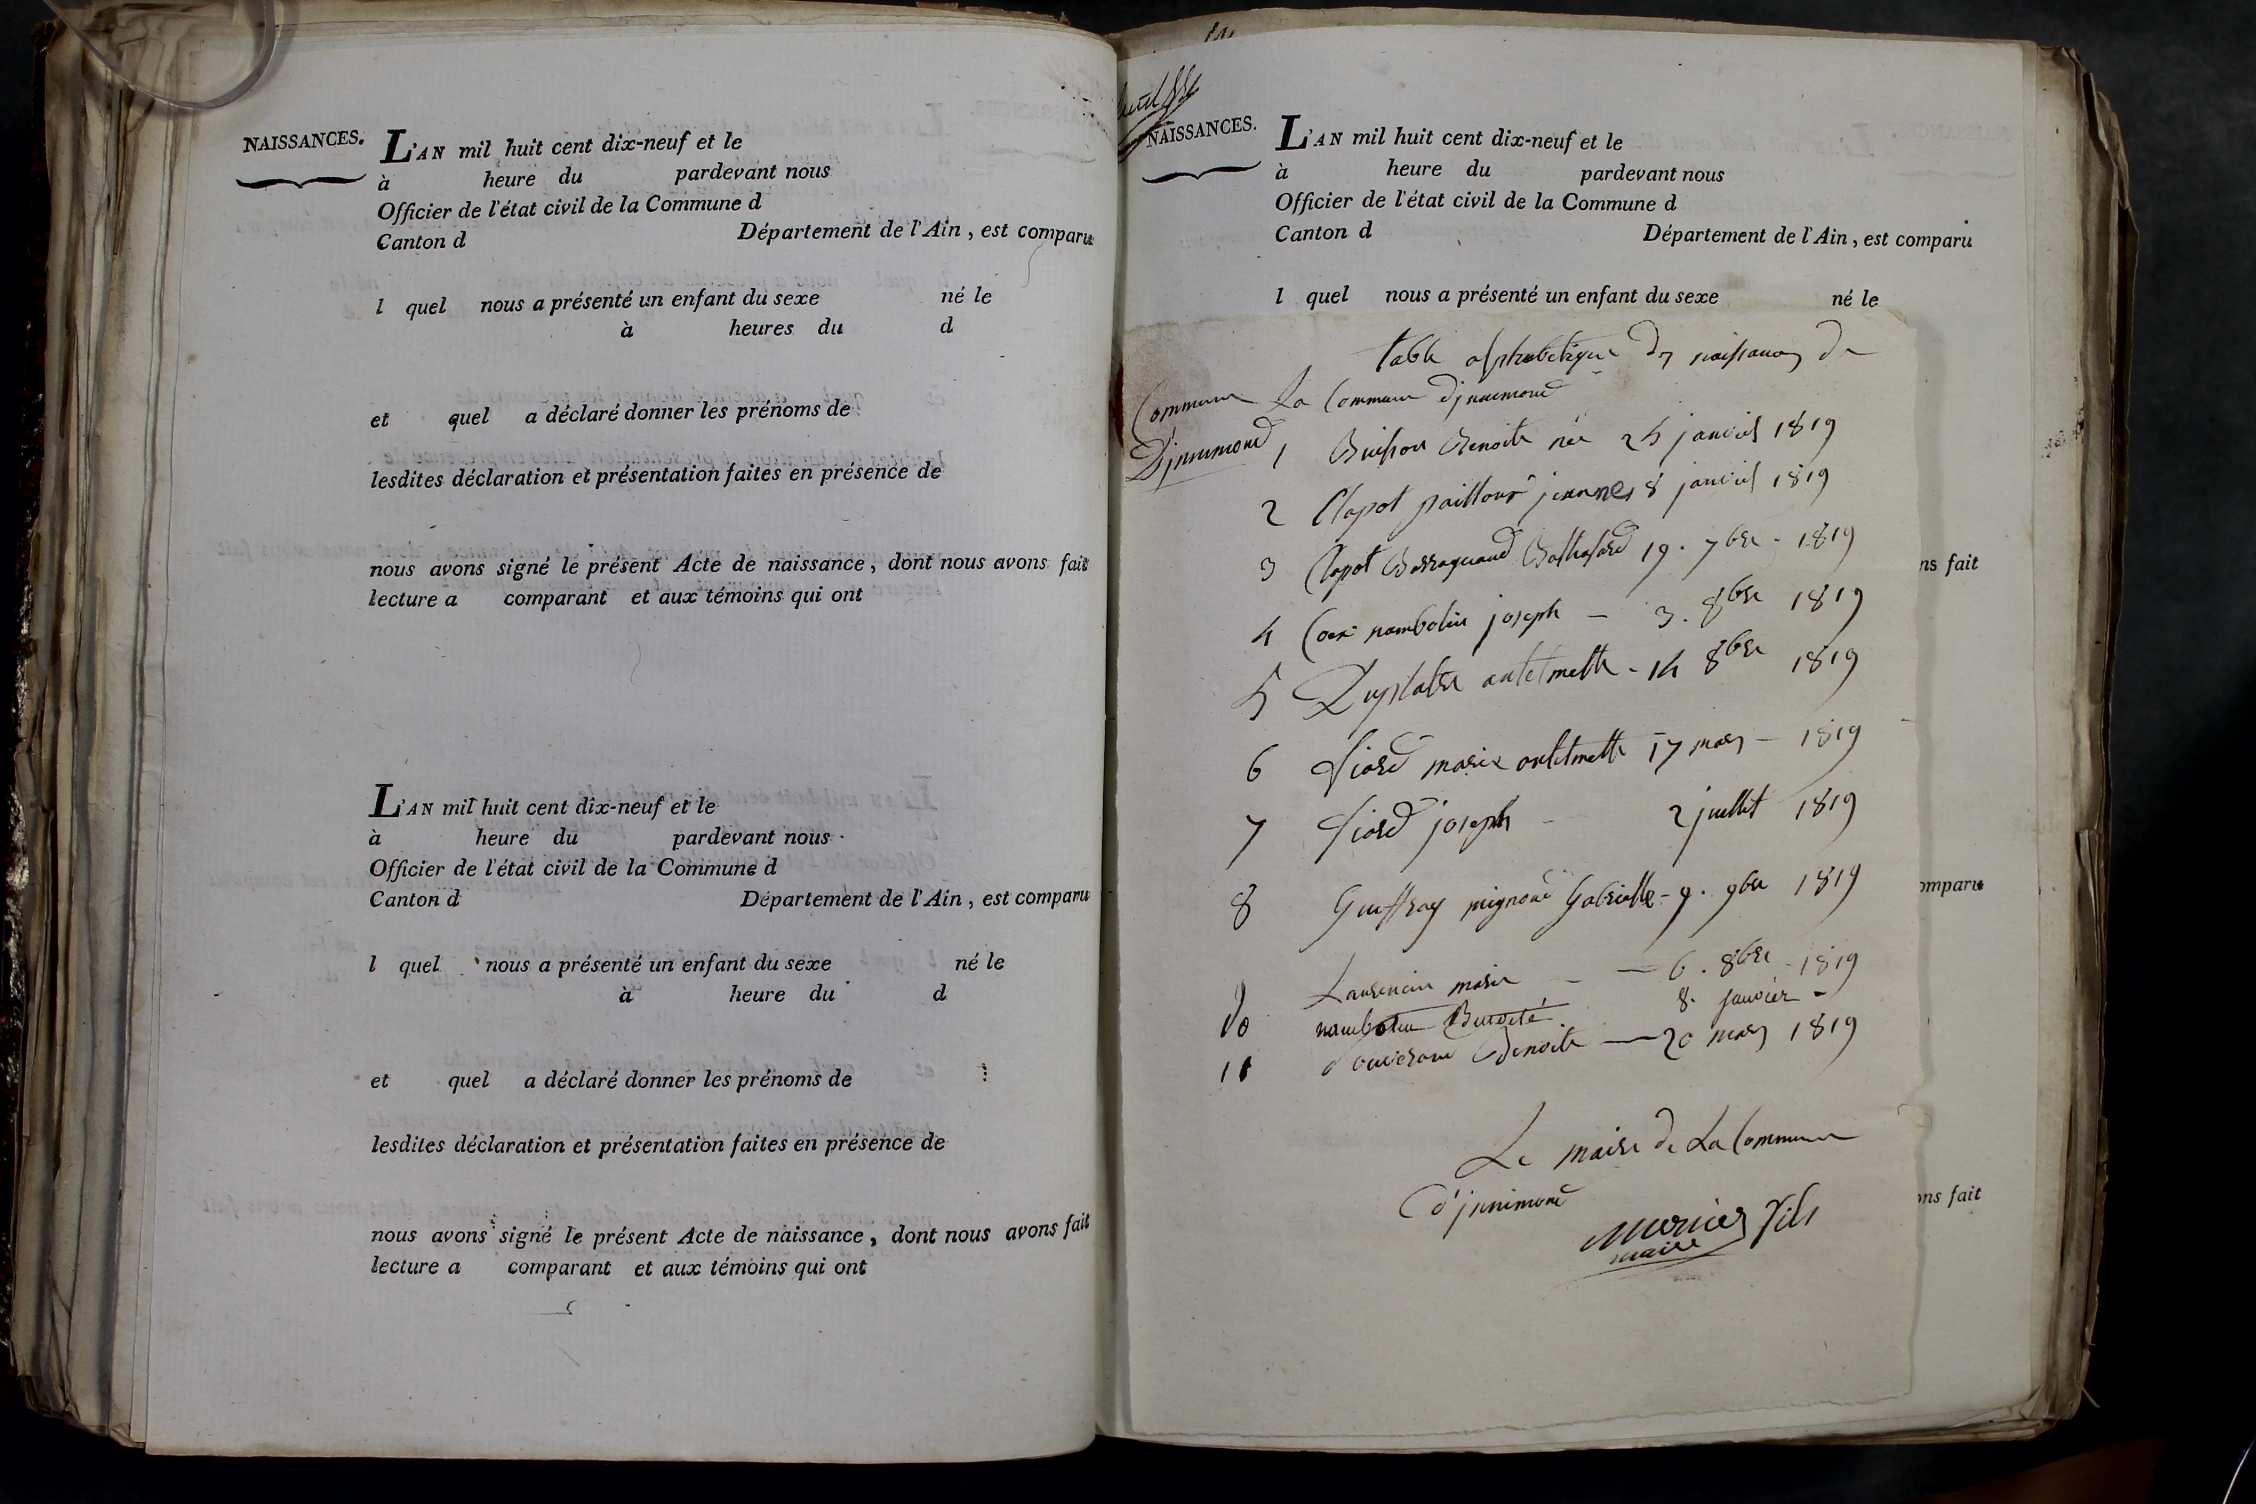 NAISSANCES.
L'AN mil huit cent dix-neuf et le
à heure du pardevant nous
Officier de l'état civil de la Commune d
Canton d Département de l'Ain, est comparu
l quel nous a présenté un enfant du sexe né le
à heures du d
et quel a déclaré donner les prénoms de
lesdites déclaration et présentation faites en présence de
nous avons signé le présent Acte de naissance, dont nous avons fait
lecture a comparant et aux témoins qui ont
L'AN mil huit cent dix-neuf et le
à heure du pardevant nous
Officier de l'état civil de la Commune d
Canton d Département de l'Ain, est comparu
l quel nous a présenté un enfant du sexe né le
à heure du d
et quel a déclaré donner les prénoms de
lesdites déclaration et présentation faites en présence de
nous avons signé le présent Acte de naissance, dont nous avons fait
lecture a comparant et aux témoins qui ont
NAISSANCES.
L'AN mil huit cent dix-neuf et le
à heure du pardevant nous
Officier de l'état civil de la Commune d
Canton d Département de l'Ain, est comparu
l quel nous a présenté un enfant du sexe né le
table alphabetique des naissances de
La Commune d'jnnimond
Commune
D'jnnimond
1 Buisson Benoite née 25 janvier 1819
2 Clapot jeanne 8 janvier 1819
3 Clapot Balthasard 19. 7bre - 1819
ns fait
4 nambotin joseph - 3. 8bre 1819
5 Duplatre antelmette - 14 8bre 1819
6 fiard marie antelmette 17 mars - 1819
7 fiard joseph - 2 juillet 1819
8 Guiffray mignond Gabrielle - 9. 9bre 1819
omparu
9 Laurencin marie - 6. 8bre - 1819
10 nambotin Benoite 8. janvier -
11 Benoite - 20 mars 1819
Le maire de La Commune
d'jnnimond
ons fait
mercier fils
maire